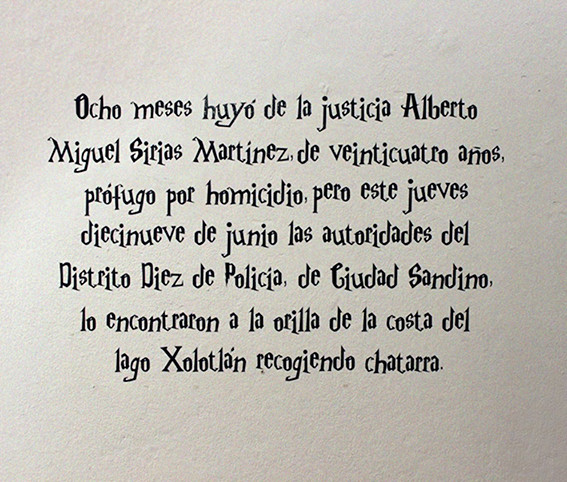 Ocho meses huyó de la justicia Alberto
Miguel Sirias Martínez, de veinticuatro años,
prófugo por homicidio, pero este jueves
diecinueve de junio las autoridades del
Distrito Diez de Policía, de Ciudad Sandino,
lo encontraron a la orilla de la costa del
lago Xolotlán recogiendo chatarra.